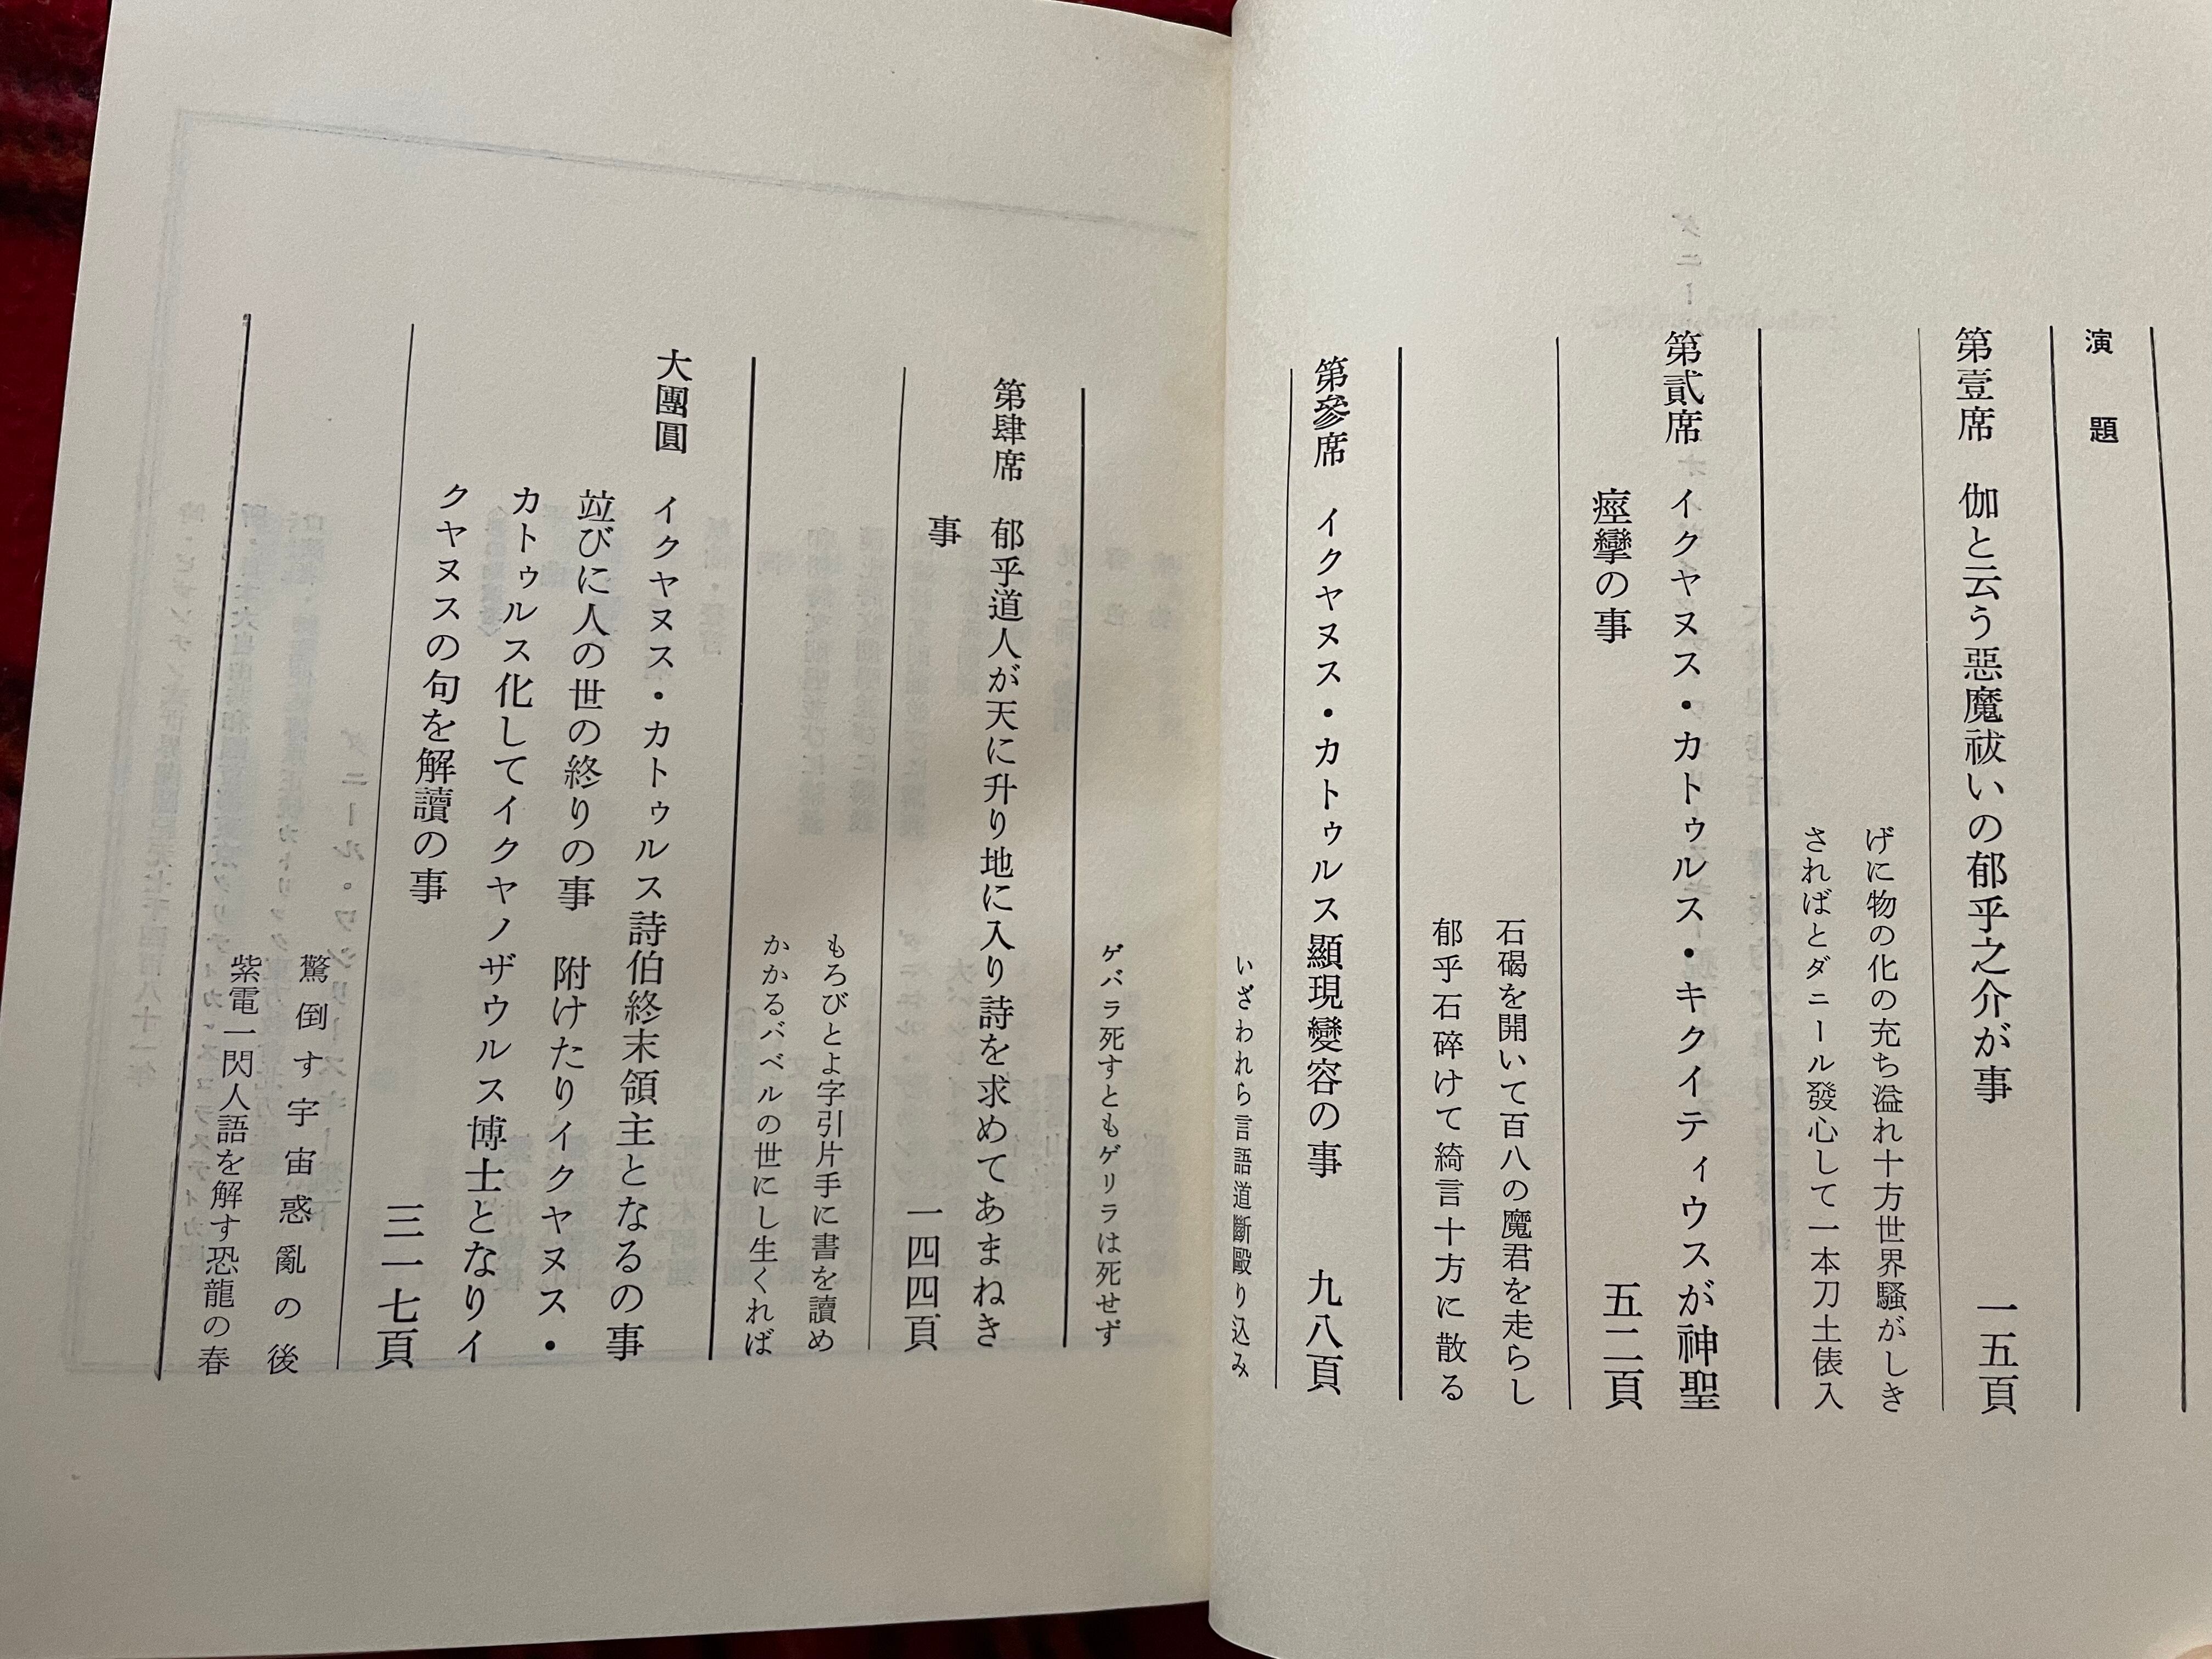 演題
第壹席 伽と云う惡魔祓いの郁乎之介が事 一五頁
げに物の化の充ち溢れ十方世界騷がしき
さればとダニール發心して一本刀土俵入
第貳席 イクヤヌス・カトゥルス・キクイティウスが神聖
痙攣の事 五二頁
石碣を開いて百八の魔君を走らし
郁乎石碎けて綺言十方に散る
第參席 イクヤヌス・カトゥルス顯現變容の事 九八頁
いざわれら言語道斷毆り込み
ゲバラ死すともゲリラは死せず
第肆席 郁乎道人が天に升り地に入り詩を求めてあまねき
事 一四四頁
もろびとよ字引片手に書を讀め
かかるバベルの世にし生くれば
大團圓 イクヤヌス・カトゥルス詩伯終末領主となるの事
竝びに人の世の終りの事 附けたりイクヤヌス・
カトゥルス化してイクヤノザウルス博士となりイ
クヤヌスの句を解讀の事 三一七頁
驚倒す宇宙惑亂の後
紫電一閃人語を解す恐龍の春